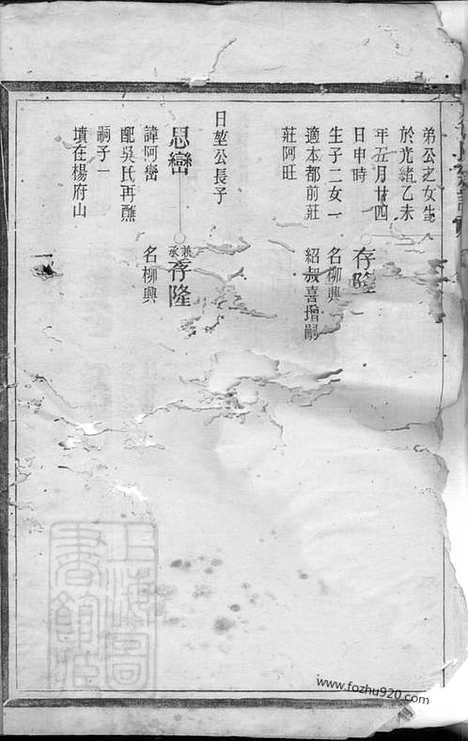 弟公之女生
於光緒乙未
年五月廿四
日申時
生子二女一
適本都前莊
莊阿旺
存隆
名柳興
紹叔喜增嗣
日堃公長子
思巒
諱阿巒
配吳氏再醮
嗣子一
墳在楊府山
兼承存隆
名柳興
上海圖書館藏
www.fozhu920.com